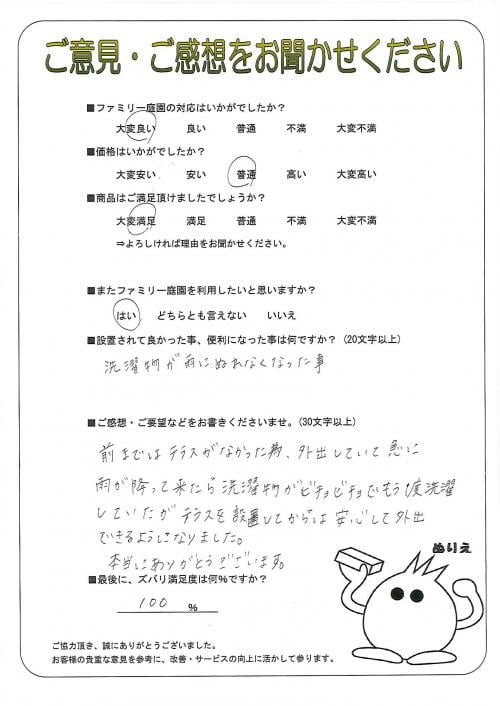 ご意見・ご感想をお聞かせください
■ファミリー庭園の対応はいかがでしたか？
大変良い 良い 普通 不満 大変不満
■価格はいかがでしたか？
大変安い 安い 普通 高い 大変高い
■商品はご満足頂けましたでしょうか？
大変満足 満足 普通 不満 大変不満
⇒よろしければ理由をお聞かせください。
■またファミリー庭園を利用したいと思いますか？
はい どちらとも言えない いいえ
■設置されて良かった事、便利になった事は何ですか？（20文字以上）
洗濯物が雨にぬれなくなった事
■ご感想・ご要望などをお書きくださいませ。（30文字以上）
前まではテラスがなかった為、外出していて急に
雨が降って来たら洗濯物がビチョビチョでもう1度洗濯
していたがテラスを設置してからは安心して外出
できるようになりました。
本当にありがとうございます。
ぬりえ
■最後に、ズバリ満足度は何％ですか？
100 %
ご協力頂き、誠にありがとうございました。
お客様の貴重な意見を参考に、改善・サービスの向上に活かして参ります。